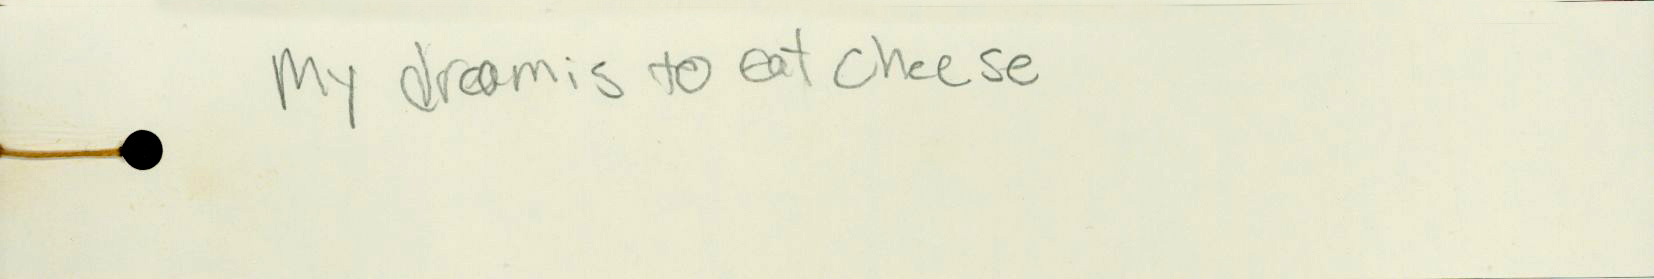 My dream is to eat cheese